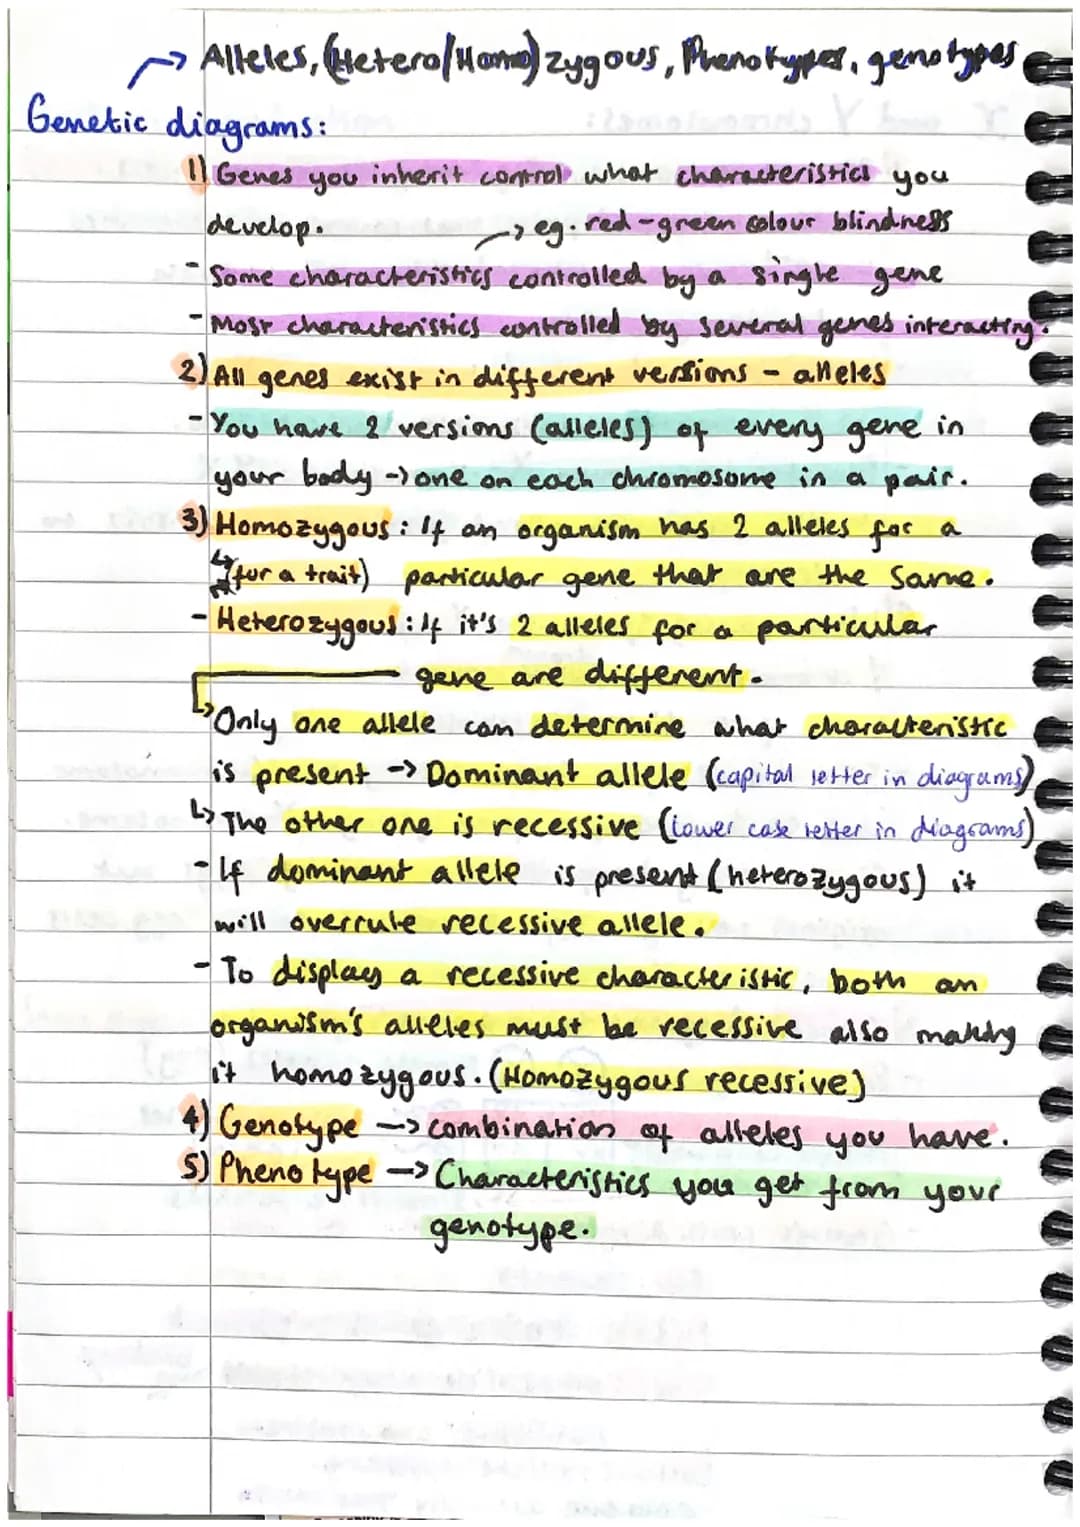 → Alleles, (Hetero/Homo) zygous, Phenotypes, genotypes
Genetic diagrams:
1) Genes you inherit control what characteristics you
develop. → eg. red-green colour blindness
- Some characteristics controlled by a single gene
- Most characteristics controlled by several genes interacting.
2) All genes exist in different versions - alleles
- You have 2 versions (alleles) of every gene in
your body → one on each chromosome in a pair.
3) Homozygous: If an organism has 2 alleles for a
↳ (for a trait) particular gene that are the same.
- Heterozygous: If it's 2 alleles for a particular
gene are different.
↳ Only one allele can determine what characteristic
is present → Dominant allele (capital letter in diagrams)
↳ The other one is recessive (lower case letter in diagrams)
- If dominant allele is present (heterozygous) it
will overrule recessive allele.
- To display a recessive characteristic, both an
organism's alleles must be recessive also making
it homozygous. (Homozygous recessive)
4) Genotype → combination of alleles you have.
5) Phenotype → Characteristics you get from your
genotype.